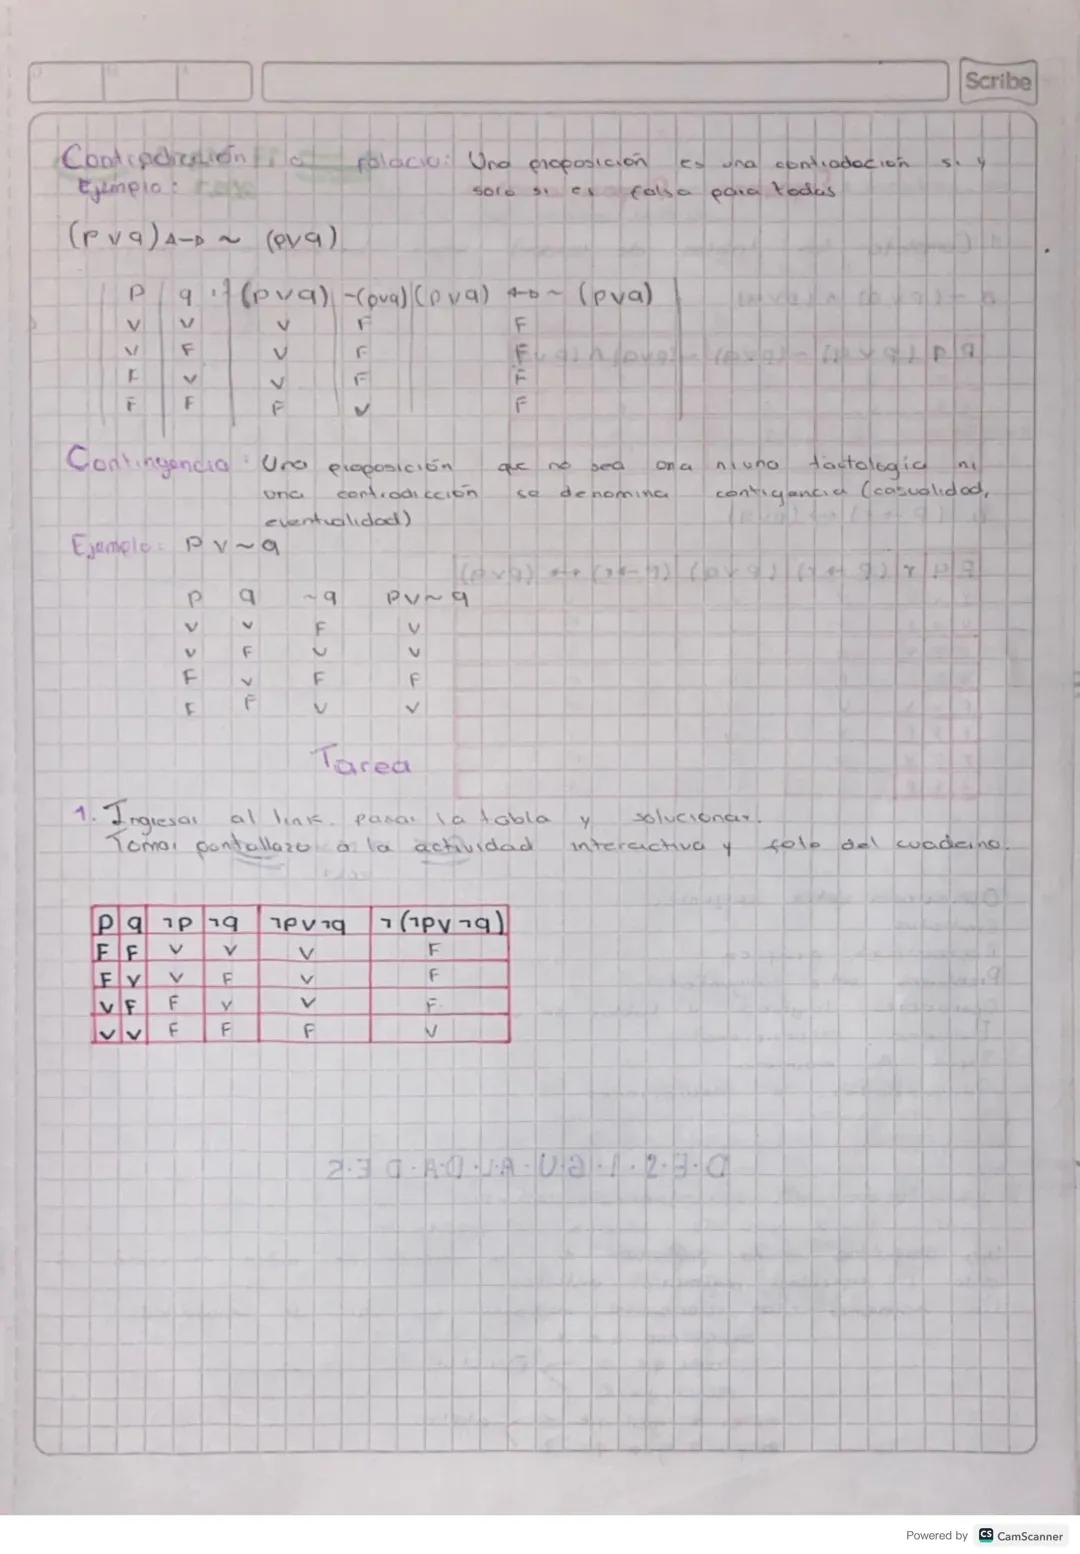 Scribe
Contradicción o falacia: Una proposición es una contradoción si y
Ejemplo: solo si es falsa para todas
(p v q) ◁-▷ ~ (p v q)
p q (p v q) ~(p v q) (p v q) ◁-▷ ~ (p v q)
V V V F F
V F V F F
F V V F F
F F F V F
Contingencia: Una proposición que no sea ona niuna tactologia ni
una contradicción se denomina contigencia (casualidad,
eventualidad)
Ejemplo: p v ~ q
p q ~q p v ~ q
V V F V
V F V V
F V F F
F F V V
Tarea
1. Ingresar al link. pasar la tabla y solucionar.
Tomar pantallazo a la actividad interactiva y foto del cuaderno.
p q ¬p ¬q ¬p v ¬q ¬(¬p v ¬q)
F F V V V F
F V V F V F
V F F V V F
V V F F F V
Powered by CS CamScanner